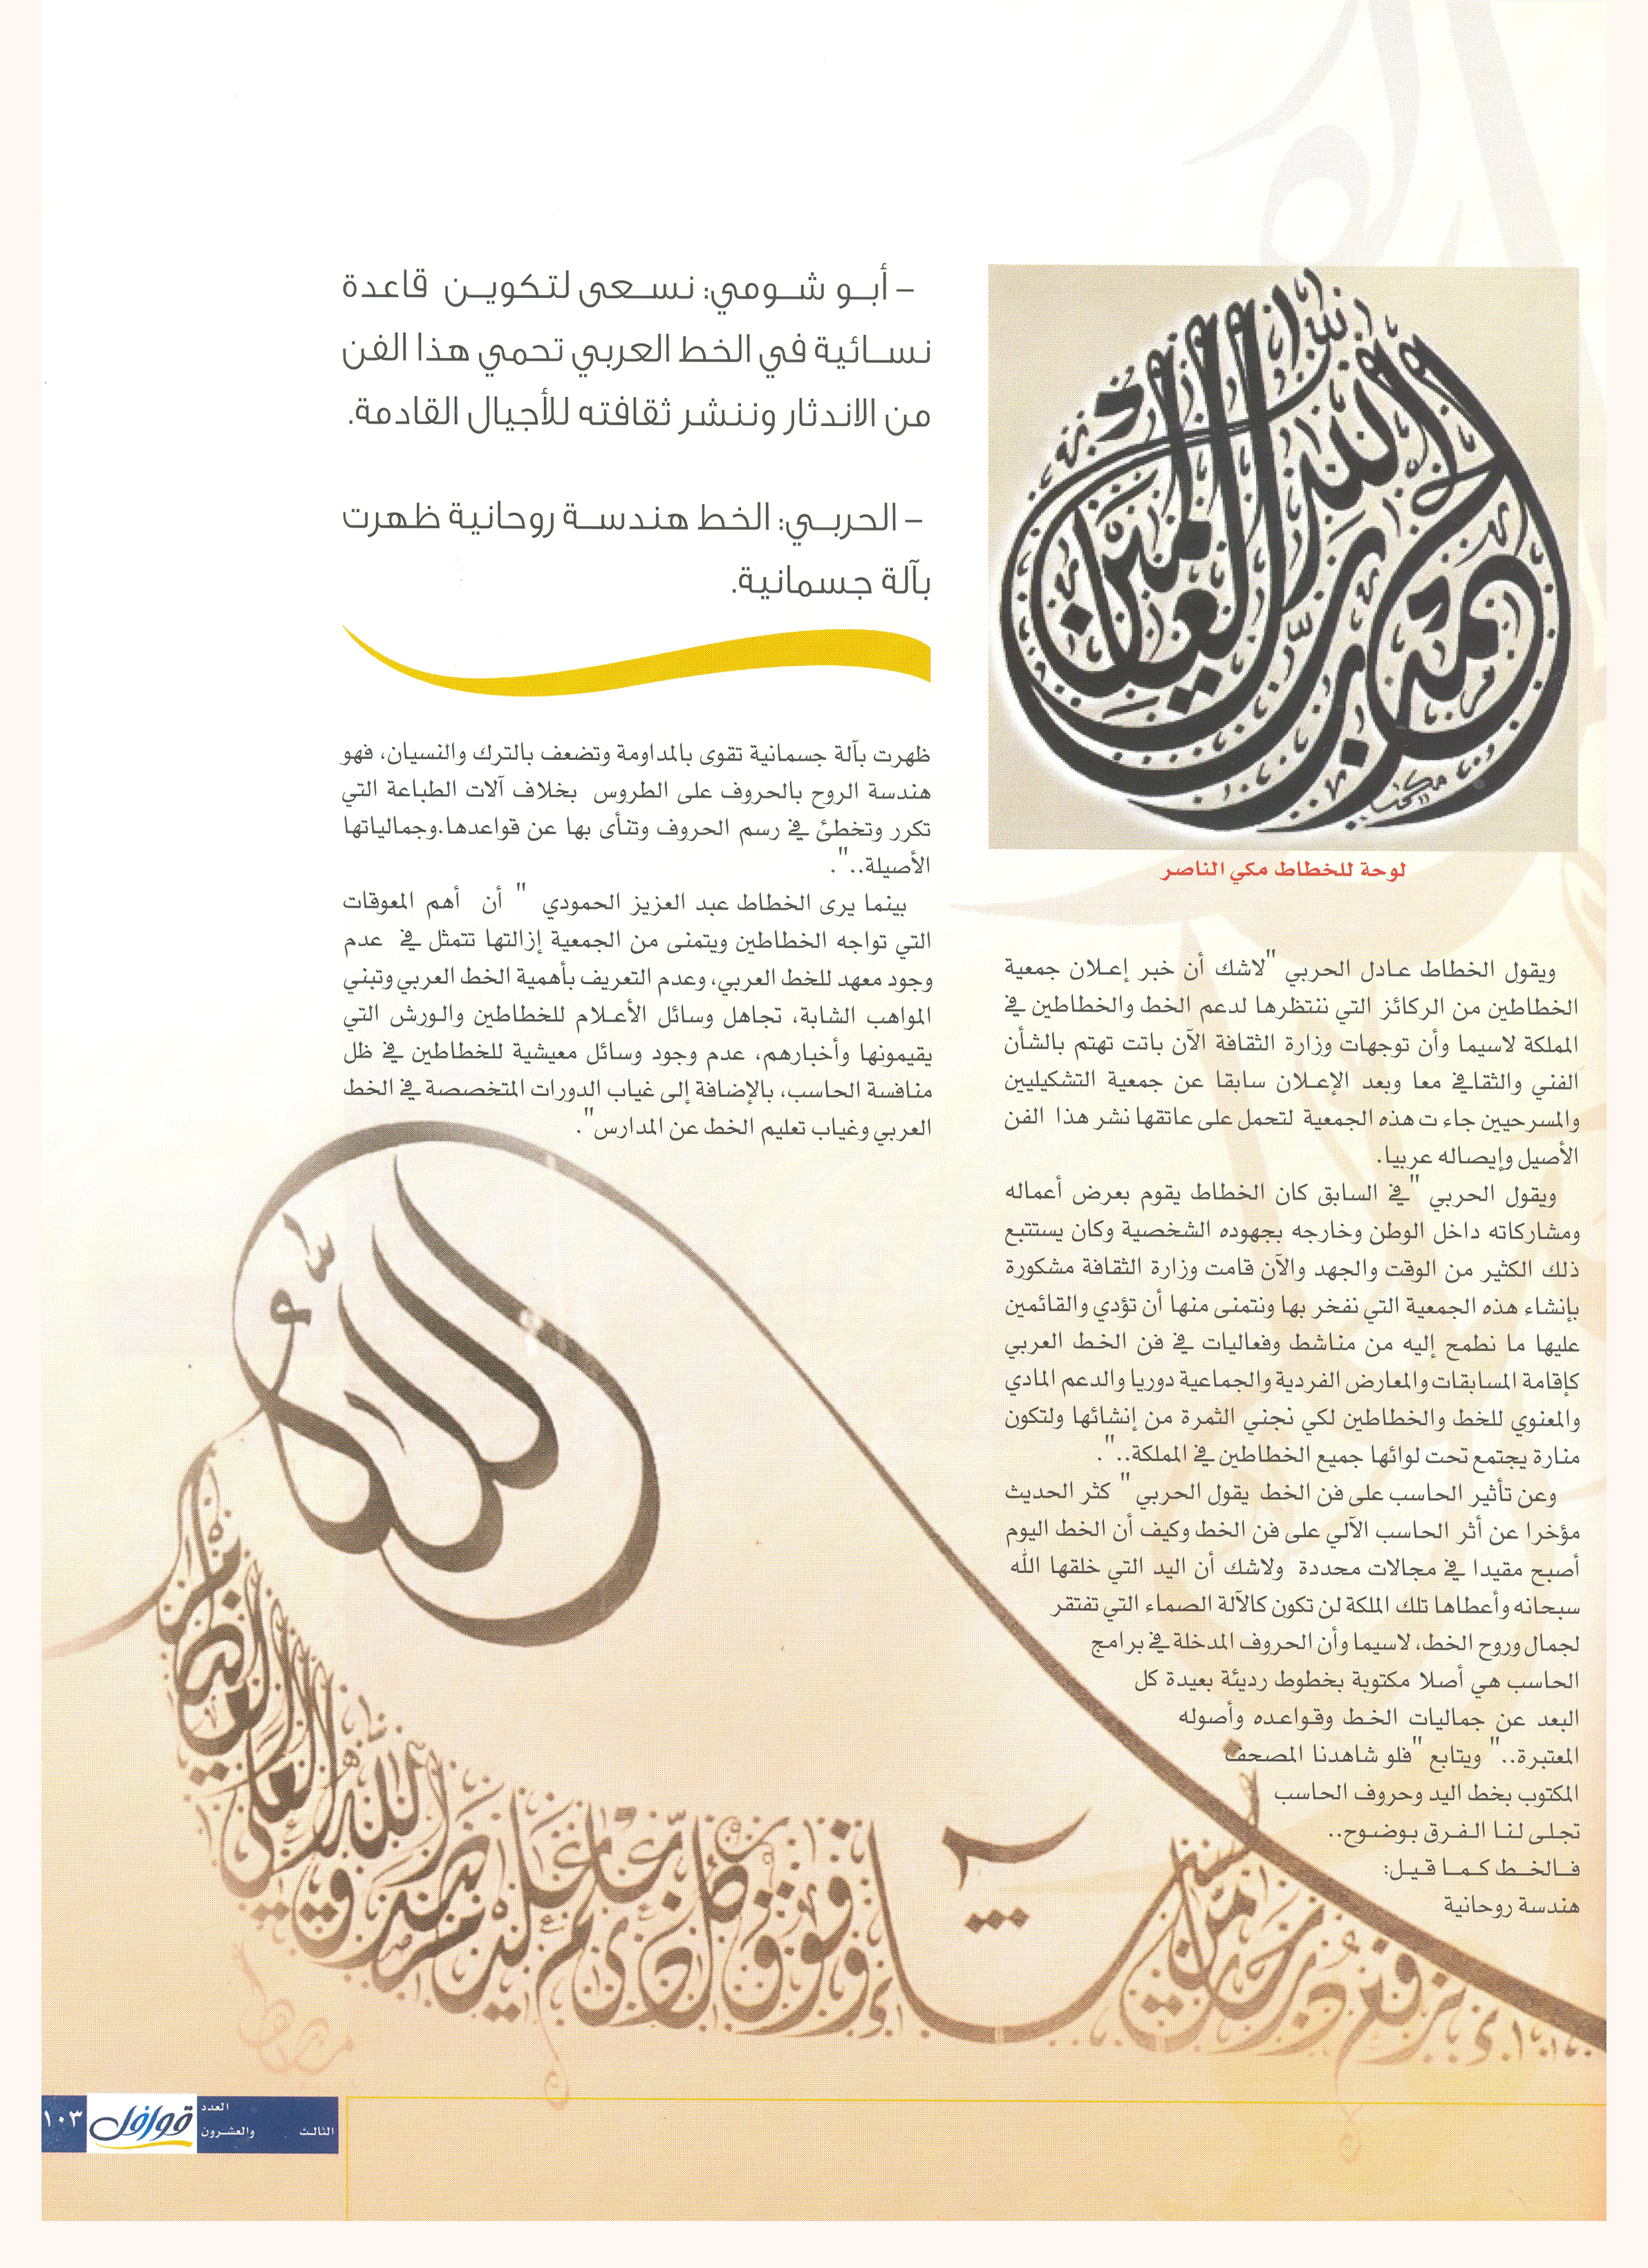 – أبو شومي: نسعى لتكوين قاعدة
نسائية في الخط العربي تحمي هذا الفن
من الاندثار وننشر ثقافته للأجيال القادمة.
– الحربي: الخط هندسة روحانية ظهرت
بآلة جسمانية.
لوحة للخطاط مكي الناصر
ويقول الخطاط عادل الحربي "لاشك أن خبر إعلان جمعية
الخطاطين من الركائز التي ننتظرها لدعم الخط والخطاطين في
المملكة لاسيما وأن توجهات وزارة الثقافة الآن باتت تهتم بالشأن
الفني والثقافي معا وبعد الإعلان سابقا عن جمعية التشكيليين
والمسرحيين جاءت هذه الجمعية لتحمل على عاتقها نشر هذا الفن
الأصيل وإيصاله عربيا.
ويقول الحربي "في السابق كان الخطاط يقوم بعرض أعماله
ومشاركاته داخل الوطن وخارجه بجهوده الشخصية وكان يستتبع
ذلك الكثير من الوقت والجهد والآن قامت وزارة الثقافة مشكورة
بإنشاء هذه الجمعية التي نفخر بها ونتمنى منها أن تؤدي والقائمين
عليها ما نطمح إليه من مناشط وفعاليات في فن الخط العربي
كإقامة المسابقات والمعارض الفردية والجماعية دوريا والدعم المادي
والمعنوي للخط والخطاطين لكي نجني الثمرة من إنشائها ولتكون
منارة يجتمع تحت لوائها جميع الخطاطين في المملكة..".
وعن تأثير الحاسب على فن الخط يقول الحربي " كثر الحديث
مؤخرا عن أثر الحاسب الآلي على فن الخط وكيف أن الخط اليوم
أصبح مقيدا في مجالات محددة ولاشك أن اليد التي خلقها الله
سبحانه وأعطاها تلك الملكة لن تكون كالآلة الصماء التي تفتقر
لجمال وروح الخط، لاسيما وأن الحروف المدخلة في برامج
الحاسب هي أصلا مكتوبة بخطوط رديئة بعيدة كل
البعد عن جماليات الخط وقواعده وأصوله
المعتبرة.." ويتابع "فلو شاهدنا المصحف
المكتوب بخط اليد وحروف الحاسب
تجلى لنا الفرق بوضوح..
فالخط كما قيل:
هندسة روحانية
ظهرت بآلة جسمانية تقوى بالمداومة وتضعف بالترك والنسيان، فهو
هندسة الروح بالحروف على الطروس بخلاف آلات الطباعة التي
تكرر وتخطئ في رسم الحروف وتنأى بها عن قواعدها.وجمالياتها
الأصيلة..".
بينما يرى الخطاط عبد العزيز الحمودي " أن أهم المعوقات
التي تواجه الخطاطين ويتمنى من الجمعية إزالتها تتمثل في عدم
وجود معهد للخط العربي، وعدم التعريف بأهمية الخط العربي وتبني
المواهب الشابة، تجاهل وسائل الأعلام للخطاطين والورش التي
يقيمونها وأخبارهم، عدم وجود وسائل معيشية للخطاطين في ظل
منافسة الحاسب، بالإضافة إلى غياب الدورات المتخصصة في الخط
العربي وغياب تعليم الخط عن المدارس".
العدد
الثالث والعشرون
قوافل
١٠٣